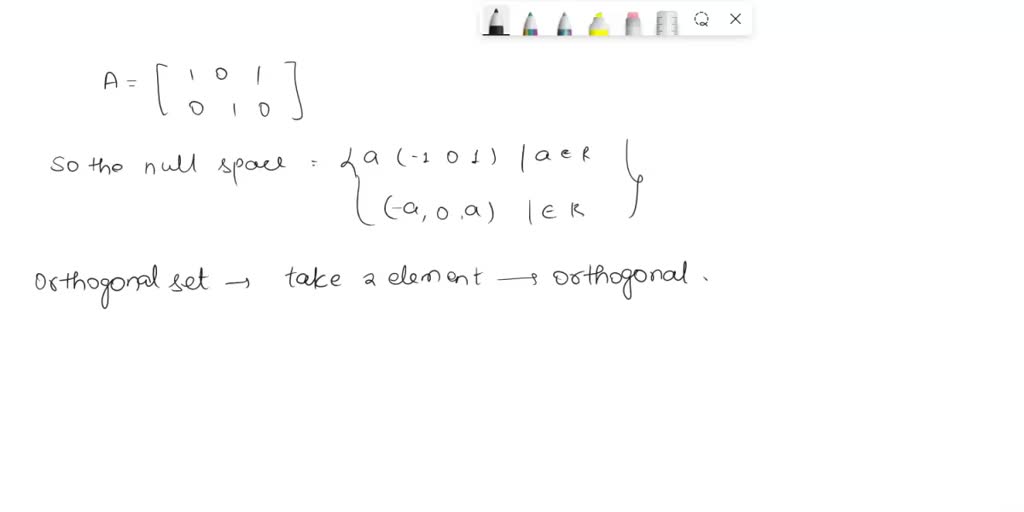 A = [ 1 0 1
0 1 0 ]
So the null space = { a (-1 0 1) | a ∈ R
(-a, 0, a) | ∈ R }
Orthogonal set → take 2 element → orthogonal.